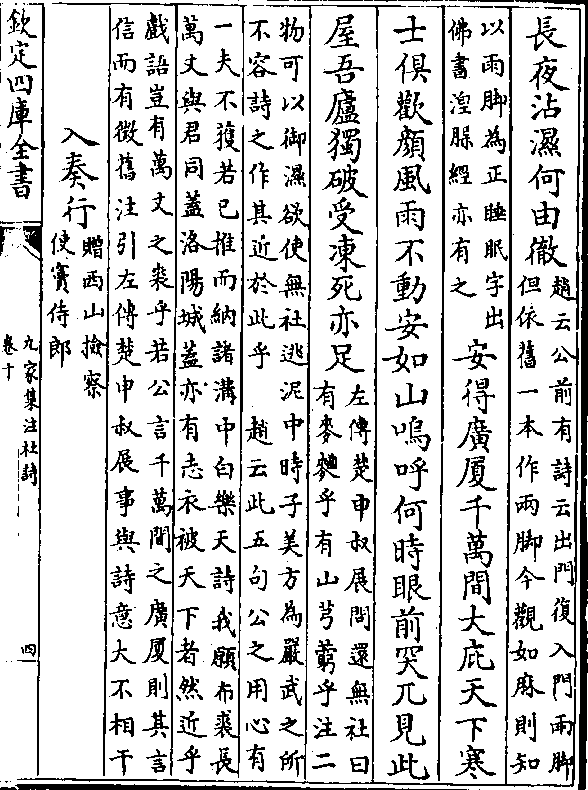 長夜沾濕何由徹
趙云公前有詩云出門復入門雨脚
但依舊一本作兩脚今觀如麻則知
以雨脚為正睡眠字出
佛書湟脲經亦有之
安得廣厦千萬間大庇天下寒
士俱歡顔風雨不動安如山嗚呼何時眼前突兀見此
屋吾廬獨破受凍死亦足
左傳楚申叔展問還無社曰
有麥麯乎有山芎藭乎注二
物可以御濕欲使無社逃泥中時子美方為嚴武之所
不容詩之作其近於此乎　趙云此五句公之用心有
一夫不獲若已推而納諸溝中白樂天詩我願布裘長
萬丈與君同蓋洛陽城蓋亦有志衣被天下者然近乎
戲語豈有萬丈之裘乎若公言千萬間之廣厦則其言
信而有徵舊注引左傳楚申叔展事與詩意大不相干
入奏行
贈西山撿察
使竇侍郎
欽定四庫全書
九家集注杜詩
卷十
四